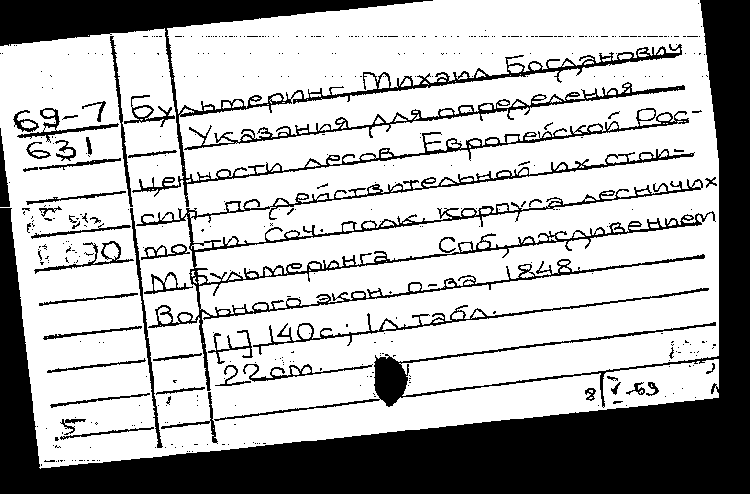 69-7 Бульмеринг, Михаил Богданович
631 Указания для определения
ценности лесов Европейской Рос-
сии, по действительной их стои-
390 мости. Соч. полк. корпуса лесничих
М. Бульмеринга. Спб., иждивением
Вольного экон. о-ва, 1848.
[1], 140 с.; 1 л. табл.
22 см.
5
8/V-69